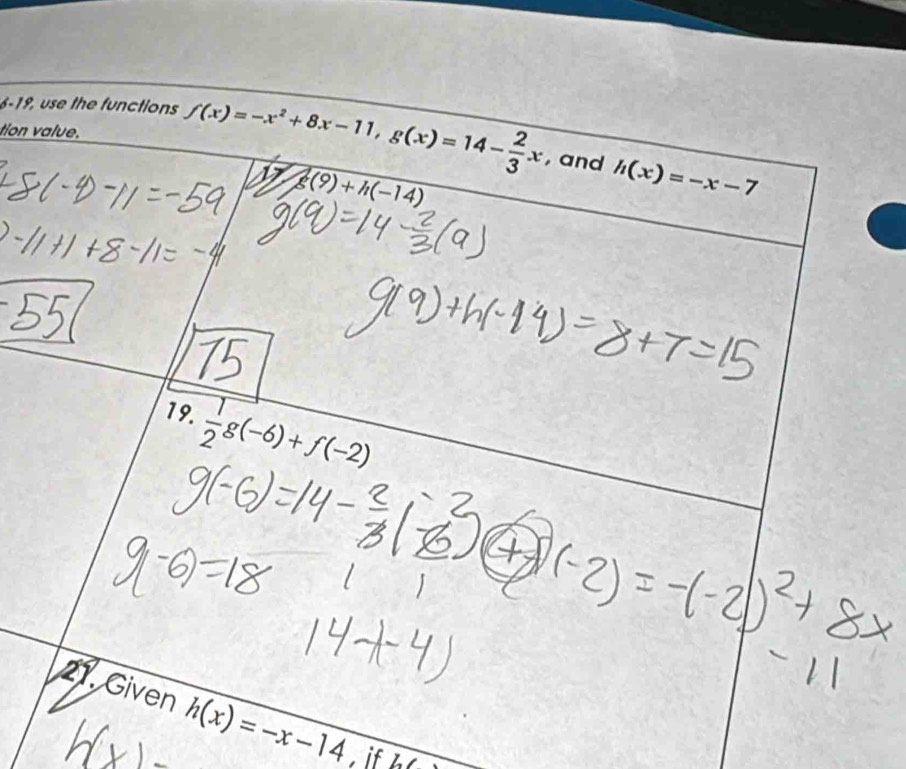 6-19, use the functions f(x) = -x² + 8x - 11, g(x) = 14 - 2/3 x, and h(x) = -x - 7
tion value.
+8(-4)-11=-59
)-11+1+8-11=-4
-55
17. g(9) + h(-14)
g(9)=14-2/3(9)
g(9)+h(-14)=8+7=15
15
19. 1/2 g(-6) + f(-2)
g(-6)=14-2/3(-6)
(-2)=-(-2)²+8x
-11
g(-6)=18
14-(-4)
21. Given h(x) = -x - 14, if h(
h(x)=